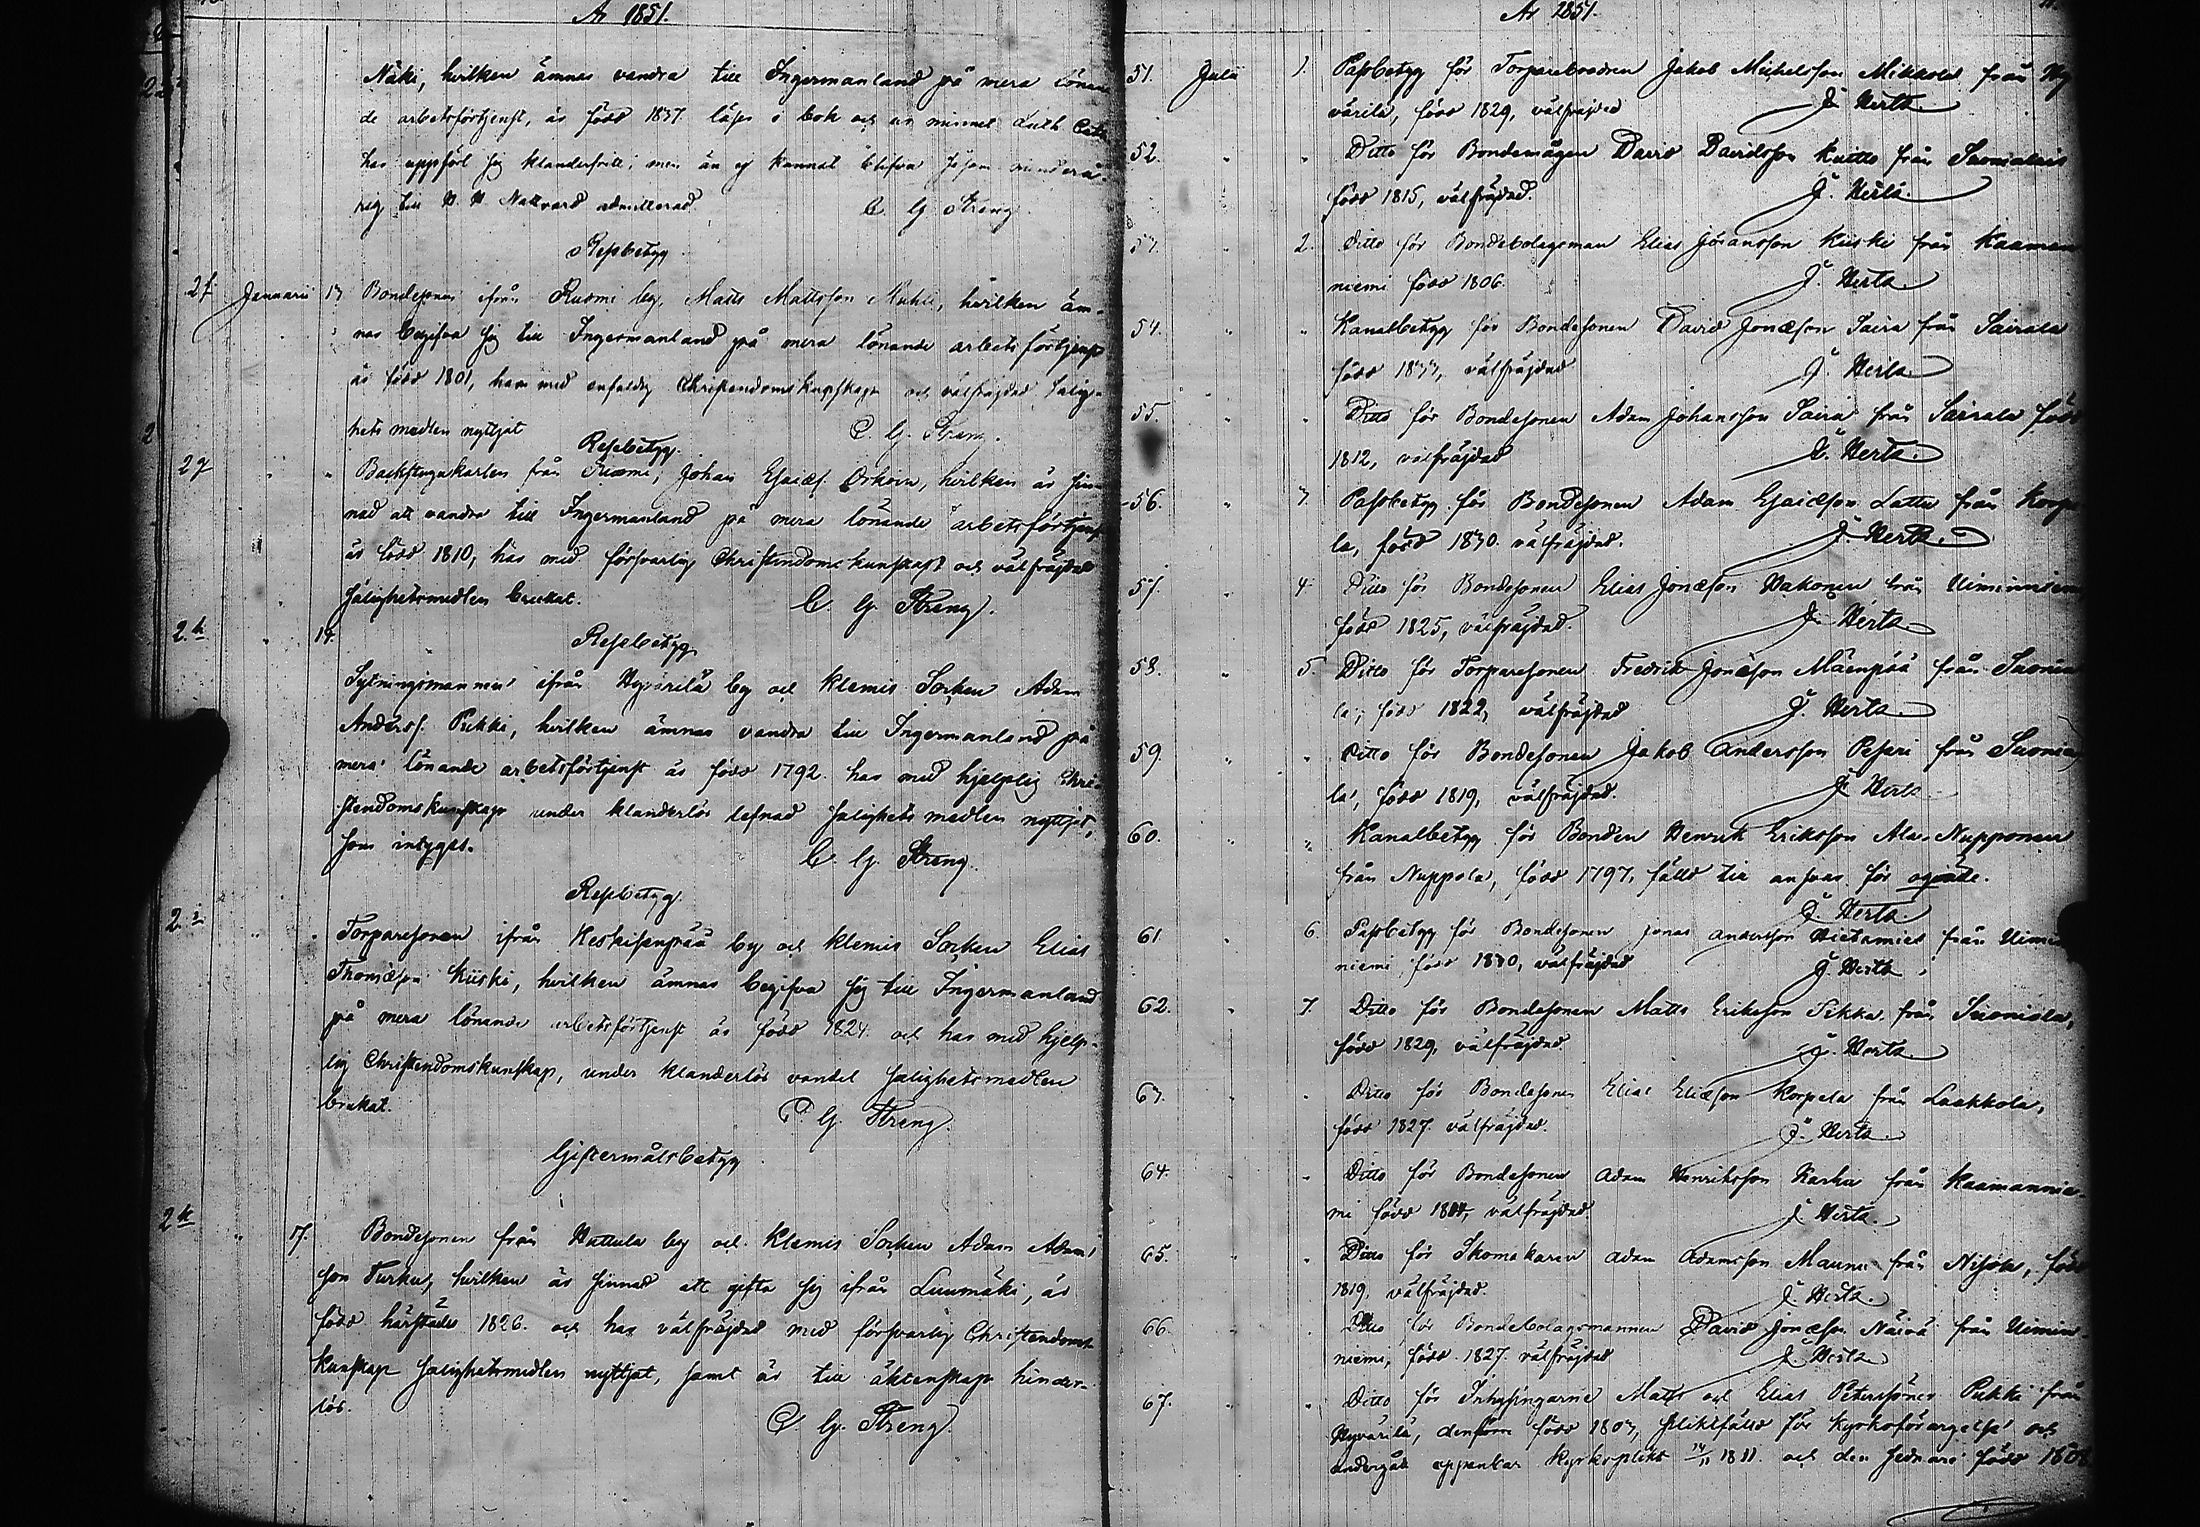 År 1851.
Näki, hvilken ämnar vandra till Ingermanland på mera lönan
de arbetsförtjenst, är född 1837. läser i bok och ur minnet
har uppfört sig klanderfritt; men än ej kunnat
rig till H. H. Nattvard admitterad. C. G. Streng.
Resebetyg.
2f Januarii 13 Bondesonen ifrån Rusmi by, Matts Mattsson Muhli, hvilken äm-
nar begifva sig till Ingermanland på mera lönande arbetsförtjenst
är född 1801, har med enfaldig Christendomskunskap och välfräjdad Salig-
hets medlen nyttjat C. G. Streng.
Resebetyg.
2g " " Backstugukarlen från Johan Esaiæs. hvilken är sin-
nad att vandra till Ingermanland på mera lönande arbetsförtjenst
är född 1810, har med försvarlig Christendomskunskap och välfräjdad
Salighetsmedlen brukat. C. G. Streng.
2h " 14. Resebetyg
Sytningsmannen ifrån Hyvärilä by och Klemis Socken Adam
Anderss. Pukki, hvilken ämnar vandra till Ingermanland på
mera lönande arbetsförtjenst är född 1792. har med hjelplig Chri-
stendomskunskap under klanderlös lefnad Salighets medlen nyttjat,
som intygas. C. G. Streng.
Resebetyg.
2i " " Torparesonen ifrån Keskisenpää by och Klemis Socken Elias
Thomæson Kiiski, hvilken ämnar begifva sig till Ingermanland
på mera lönande arbetsförtjenst är född 1824. och har med hjelp-
lig Christendomskunskap, under klanderlös vandel Salighetsmedlen
brukat. C. G. Streng.
Giftermålsbetyg
2k " 17. Bondesonen från Huttula by och Klemis Socken Adam Adams-
son Turku, hvilken är sinnad att gifta sig ifrån Luumäki, är
född härstädes 1826. och har välfräjdad med försvarlig Christendoms-
kunskap Salighetsmedlen nyttjat, samt är till äktenskap hinder-
lös. C. G. Streng.
År 1851.
51. Julii 1. Passbetyg för Torparebrodren Jakob Michelsson Mikkola från Hy
värilä, född 1829, välfräjdad J. Hertz.
52. " " Ditto för Bondemågen David Davidsson Kuitto från
född 1815, välfräjdad. J. Hertz.
53. " 2. Ditto för Bondebolagsman Elias Johansson Kiiski från Kaaman
niemi född 1806. J. Hertz.
54. " " Kanalbetyg för Bondesonen David Jonæson Saira från Sairala
född 1833, välfräjdad J. Hertz.
55. " " Ditto för Bondesonen Adam Johansson Saira från Sairala född
1812, välfräjdad J. Hertz.
56. " 3. Passbetyg för Bondesonen Adam Esaiæson Lattu från Korpe
la, född 1830. välfräjdad. J. Hertz.
57. " 4. Ditto för Bondesonen Elias Jonæson Hakonen från Uiminniem
född 1825, välfräjdad. J. Hertz.
58. " 5. Ditto för Torparesonen Fredrik Jonæson Mäenpää från Suoma
la, född 1822, välfräjdad J. Hertz.
59. " " Ditto för Bondesonen Jakob Andersson Pesari från Suoma
la, född 1819, välfräjdad. J. Hertz.
60. " " Kanalbetyg för Bonden Henrik Eriksson Ala-Nupponen
från Nuppola, född 1797, fälld till ansvar för
J. Hertz.
61 " 6 Passbetyg för Bondesonen Jonas Andersson Hietamies från Uimin
niemi född 1830, välfräjdad J. Hertz.
62. " 7. Ditto för Bondesonen Matts Eriksson Sikka från Suomala,
född 1829, välfräjdad J. Hertz.
63. " " Ditto för Bondesonen Elias Eliæson Korpela från Laakkola,
född 1827. välfräjdad. J. Hertz.
64. " " Ditto för Bondesonen Adam Henriksson Karhu från Kaamannie-
mi född välfräjdad. J. Hertz.
65. " " Ditto för Skomakaren Adam Adamsson Maunu från född
1819, välfräjdad. J. Hertz.
66. " " Ditto för Bondebolagsmannen David Jonæson från Uimin-
niemi, född 1827. välfräjdad J. Hertz.
67. " " Ditto för Inhysingarne Matts och Elias Peterssöner Pukki från
Hyvärilä, den förra född 1803, pliktfälld för kyrkoförargelse och
undergått uppenbar kyrkoplikt och den sednare född 1808